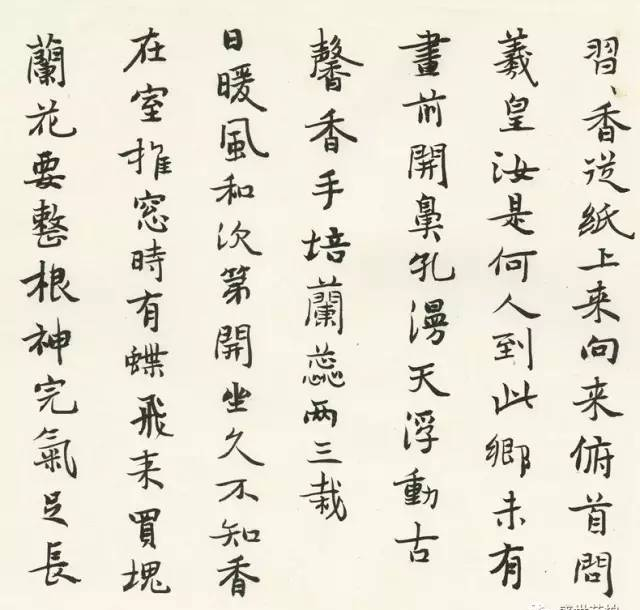 習、香從紙上来向来俯首問
羲皇汝是何人到此鄉未有
畫前開鼻孔漫天浮動古
馨香手培蘭蕊兩三栽
日暖風和次第開坐久不知香
在室推窓時有蝶飛来買塊
蘭花要整根神完氣足長